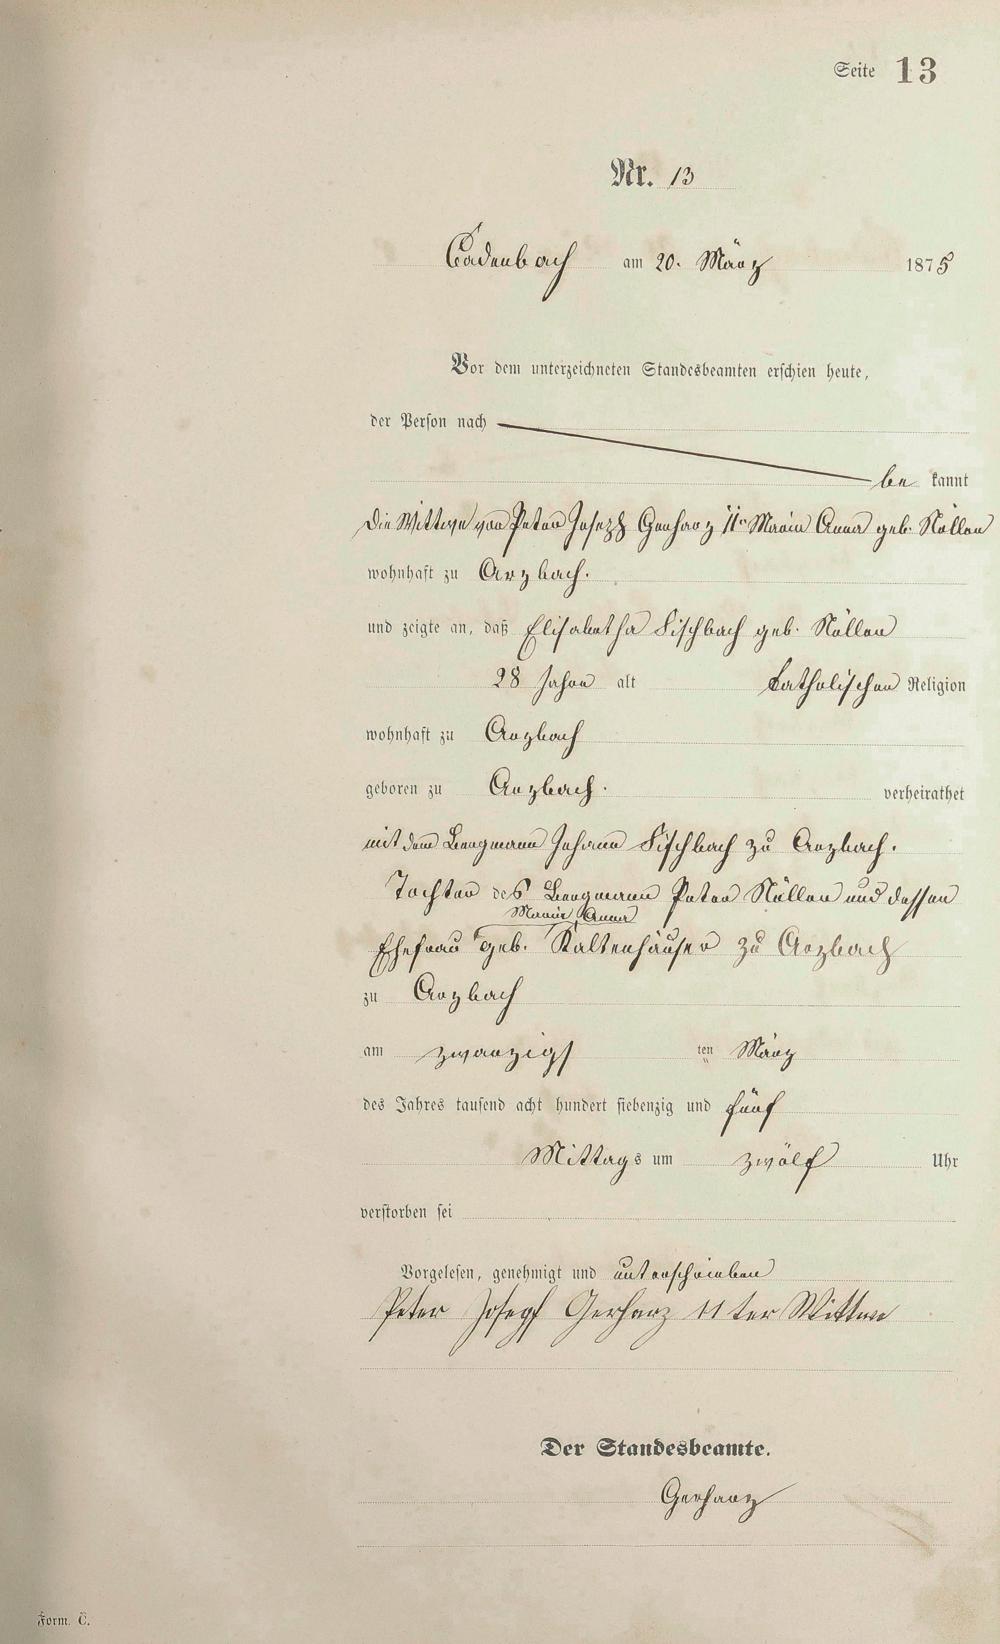 Seite 13
Nr. 13
Cadenbach am 20. März 1875
Vor dem unterzeichneten Standesbeamten erschien heute,
der Person nach
be kannt
die Wittwe von Peter Joseph Gerharz IIr Maria Anna geb. Nöllen
wohnhaft zu Arzbach.
und zeigte an, daß Elisabetha Fischbach geb. Nöllen
28 Jahre alt katholischer Religion
wohnhaft zu Arzbach
geboren zu Arzbach. verheirathet
mit dem Bergmann Johann Fischbach zu Arzbach.
Tochter des Bergmann Peter Nöllen und dessen
Maria Anna
Ehefrau geb. Kaltenhäuser zu Arzbach
zu Arzbach
am zwanzigs ten März
des Jahres tausend acht hundert siebenzig und fünf
Mittags um zwölf Uhr
verstorben sei
Vorgelesen, genehmigt und unterschrieben
Peter Josepf Gerharz 11 ter Wittwe
Der Standesbeamte.
Gerharz
Form. C.